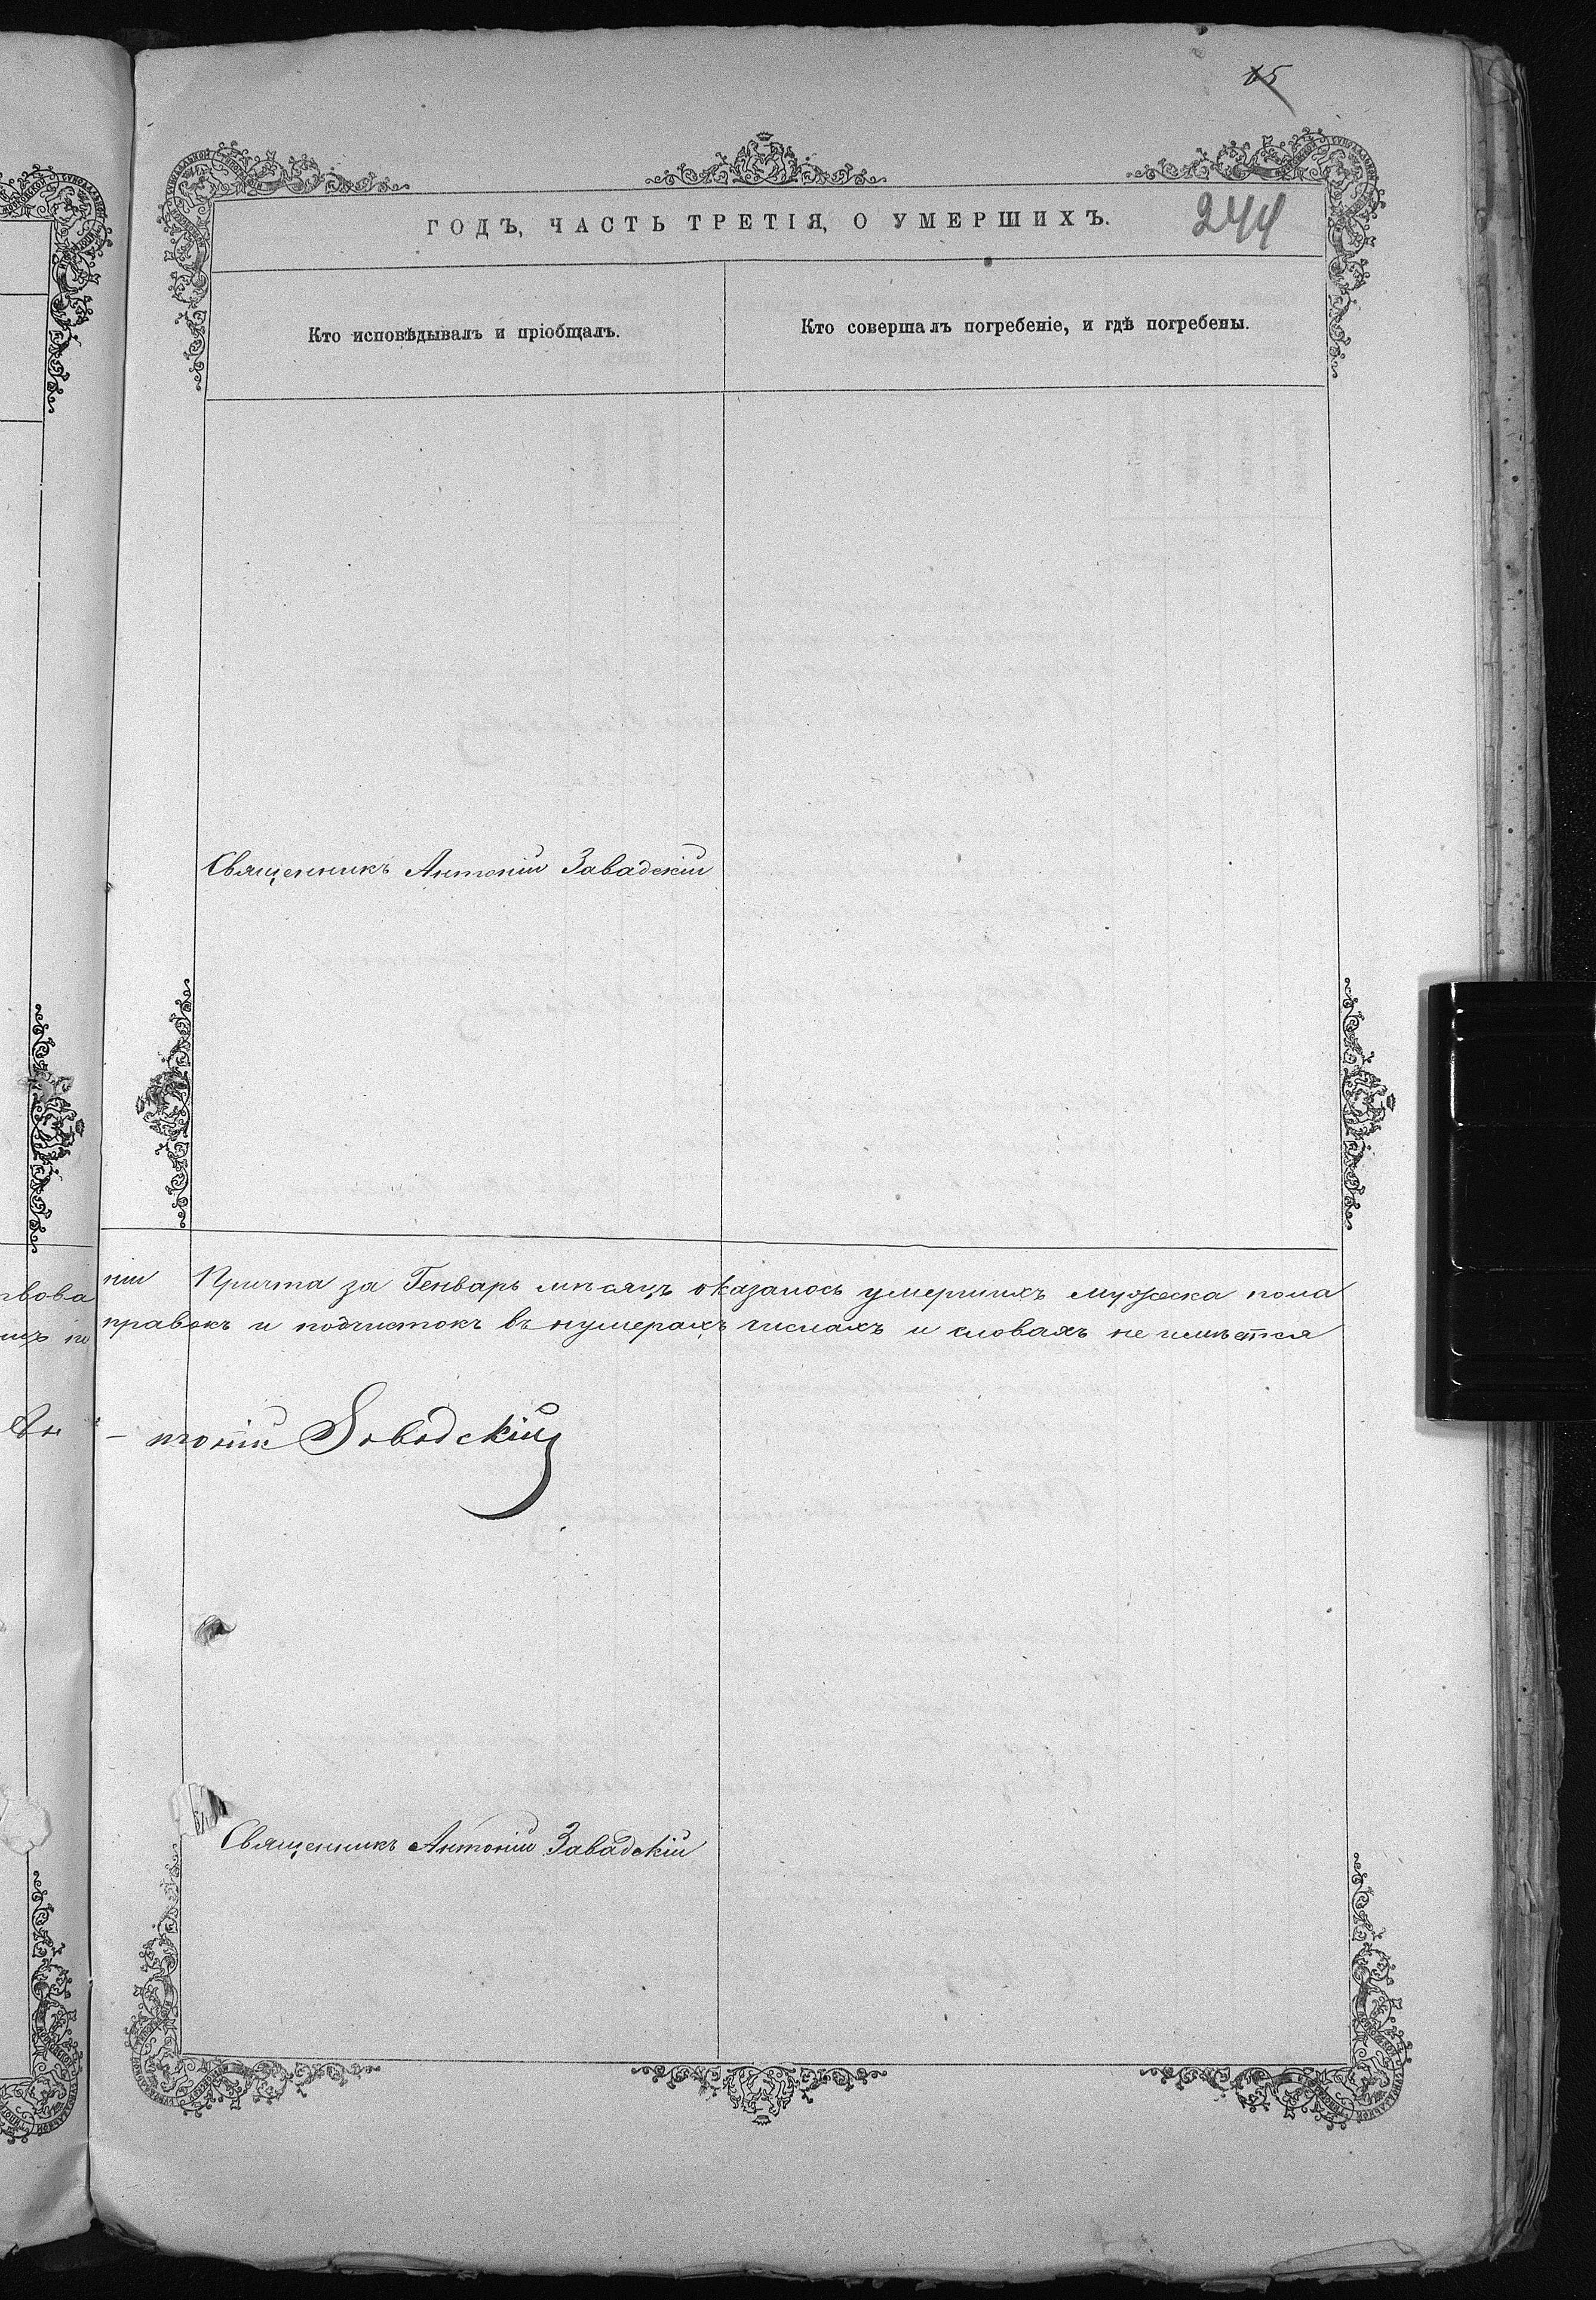 65
ГОДЪ, ЧАСТЬ ТРЕТІЯ, О УМЕРШИХЪ.
244
Кто исповѣдывалъ и пріобщалъ.
Кто совершалъ погребеніе, и гдѣ погребены.
Священникъ Антоній Завадскій
ніи Причта за Генварь мѣсяцъ оказалось умершихъ мужеска пола
правокъ и подчистокъ въ нумерахъ числахъ и словахъ не имѣется
Ан - тоній Заводскій
Священникъ Антоній Завадскій